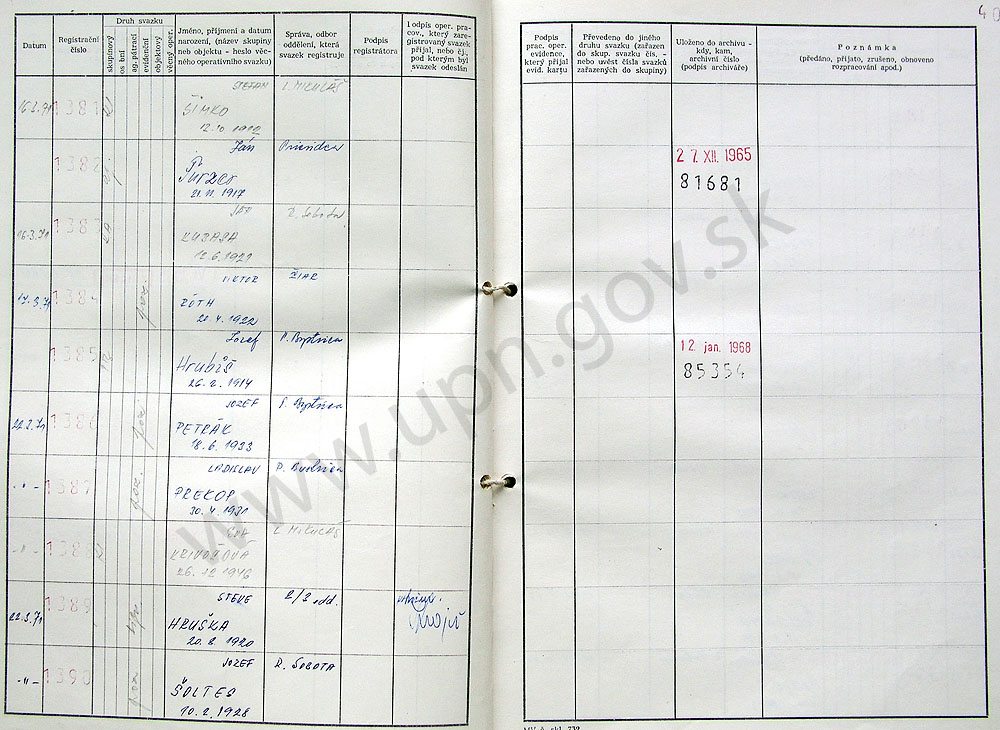 40
Datum
Registrační číslo
Druh svazku
skupinový
os bní
ag. pátrací
evidenční
objektový
věcný oper.
Jméno, příjmení a datum
narození, (název skupiny
neb objektu - heslo věc-
ného operativního svazku)
Správa, odbor
oddělení, která
svazek registruje
Podpis
registrátora
Podpis oper. pra-
cov., který zare-
gistrovaný svazek
přijal, neb čj.,
pod kterým byl
svazek odeslán
Podpis
prac. oper.
evidence,
který přijal
evid. kartu
Převedeno do jiného
druhu svazku (zařazen
do skup. svazku čís. -
nebo uvést čísla svazků
zařazených do skupiny)
Uloženo do archivu -
kdy, kam,
archivní číslo
(podpis archiváře)
Poznámka
(předáno, přijato, zrušeno, obnoveno
rozpracování apod.)
1381 STEFAN L. MIKULÁŠ
ŠIMKO
12.10 1912
1382 Ján Prievidza
Purzer
21.11.1917
27. XII. 1965
81681
16.3.71 1383 JÁN R. Sobota
KUBAŠA
12.6.1921
17.3.71 1384 VIKTOR ŽIAR
RÓTH
20.4.1922
1385 Jozef P. Bystrica
Hrubiš
26.2.1914
12 jan. 1968
85354
22.3.71 1386 JOZEF P. Bystrica
PETRÁK
18.6.1933
-"- 1387 LADISLAV P. Bystrica
PREKOP
30.4.1931
-"- 1388 EVA L. MIKULÁŠ
KRIVOŇOVÁ
26.12.1946
22.3.71 1389 STEVE 2/2 odd.
HRUŠKA
20.2.1920
-"- 1390 JOZEF R. SOBOTA
ŠOLTES
10.2.1928
www.upn.gov.sk